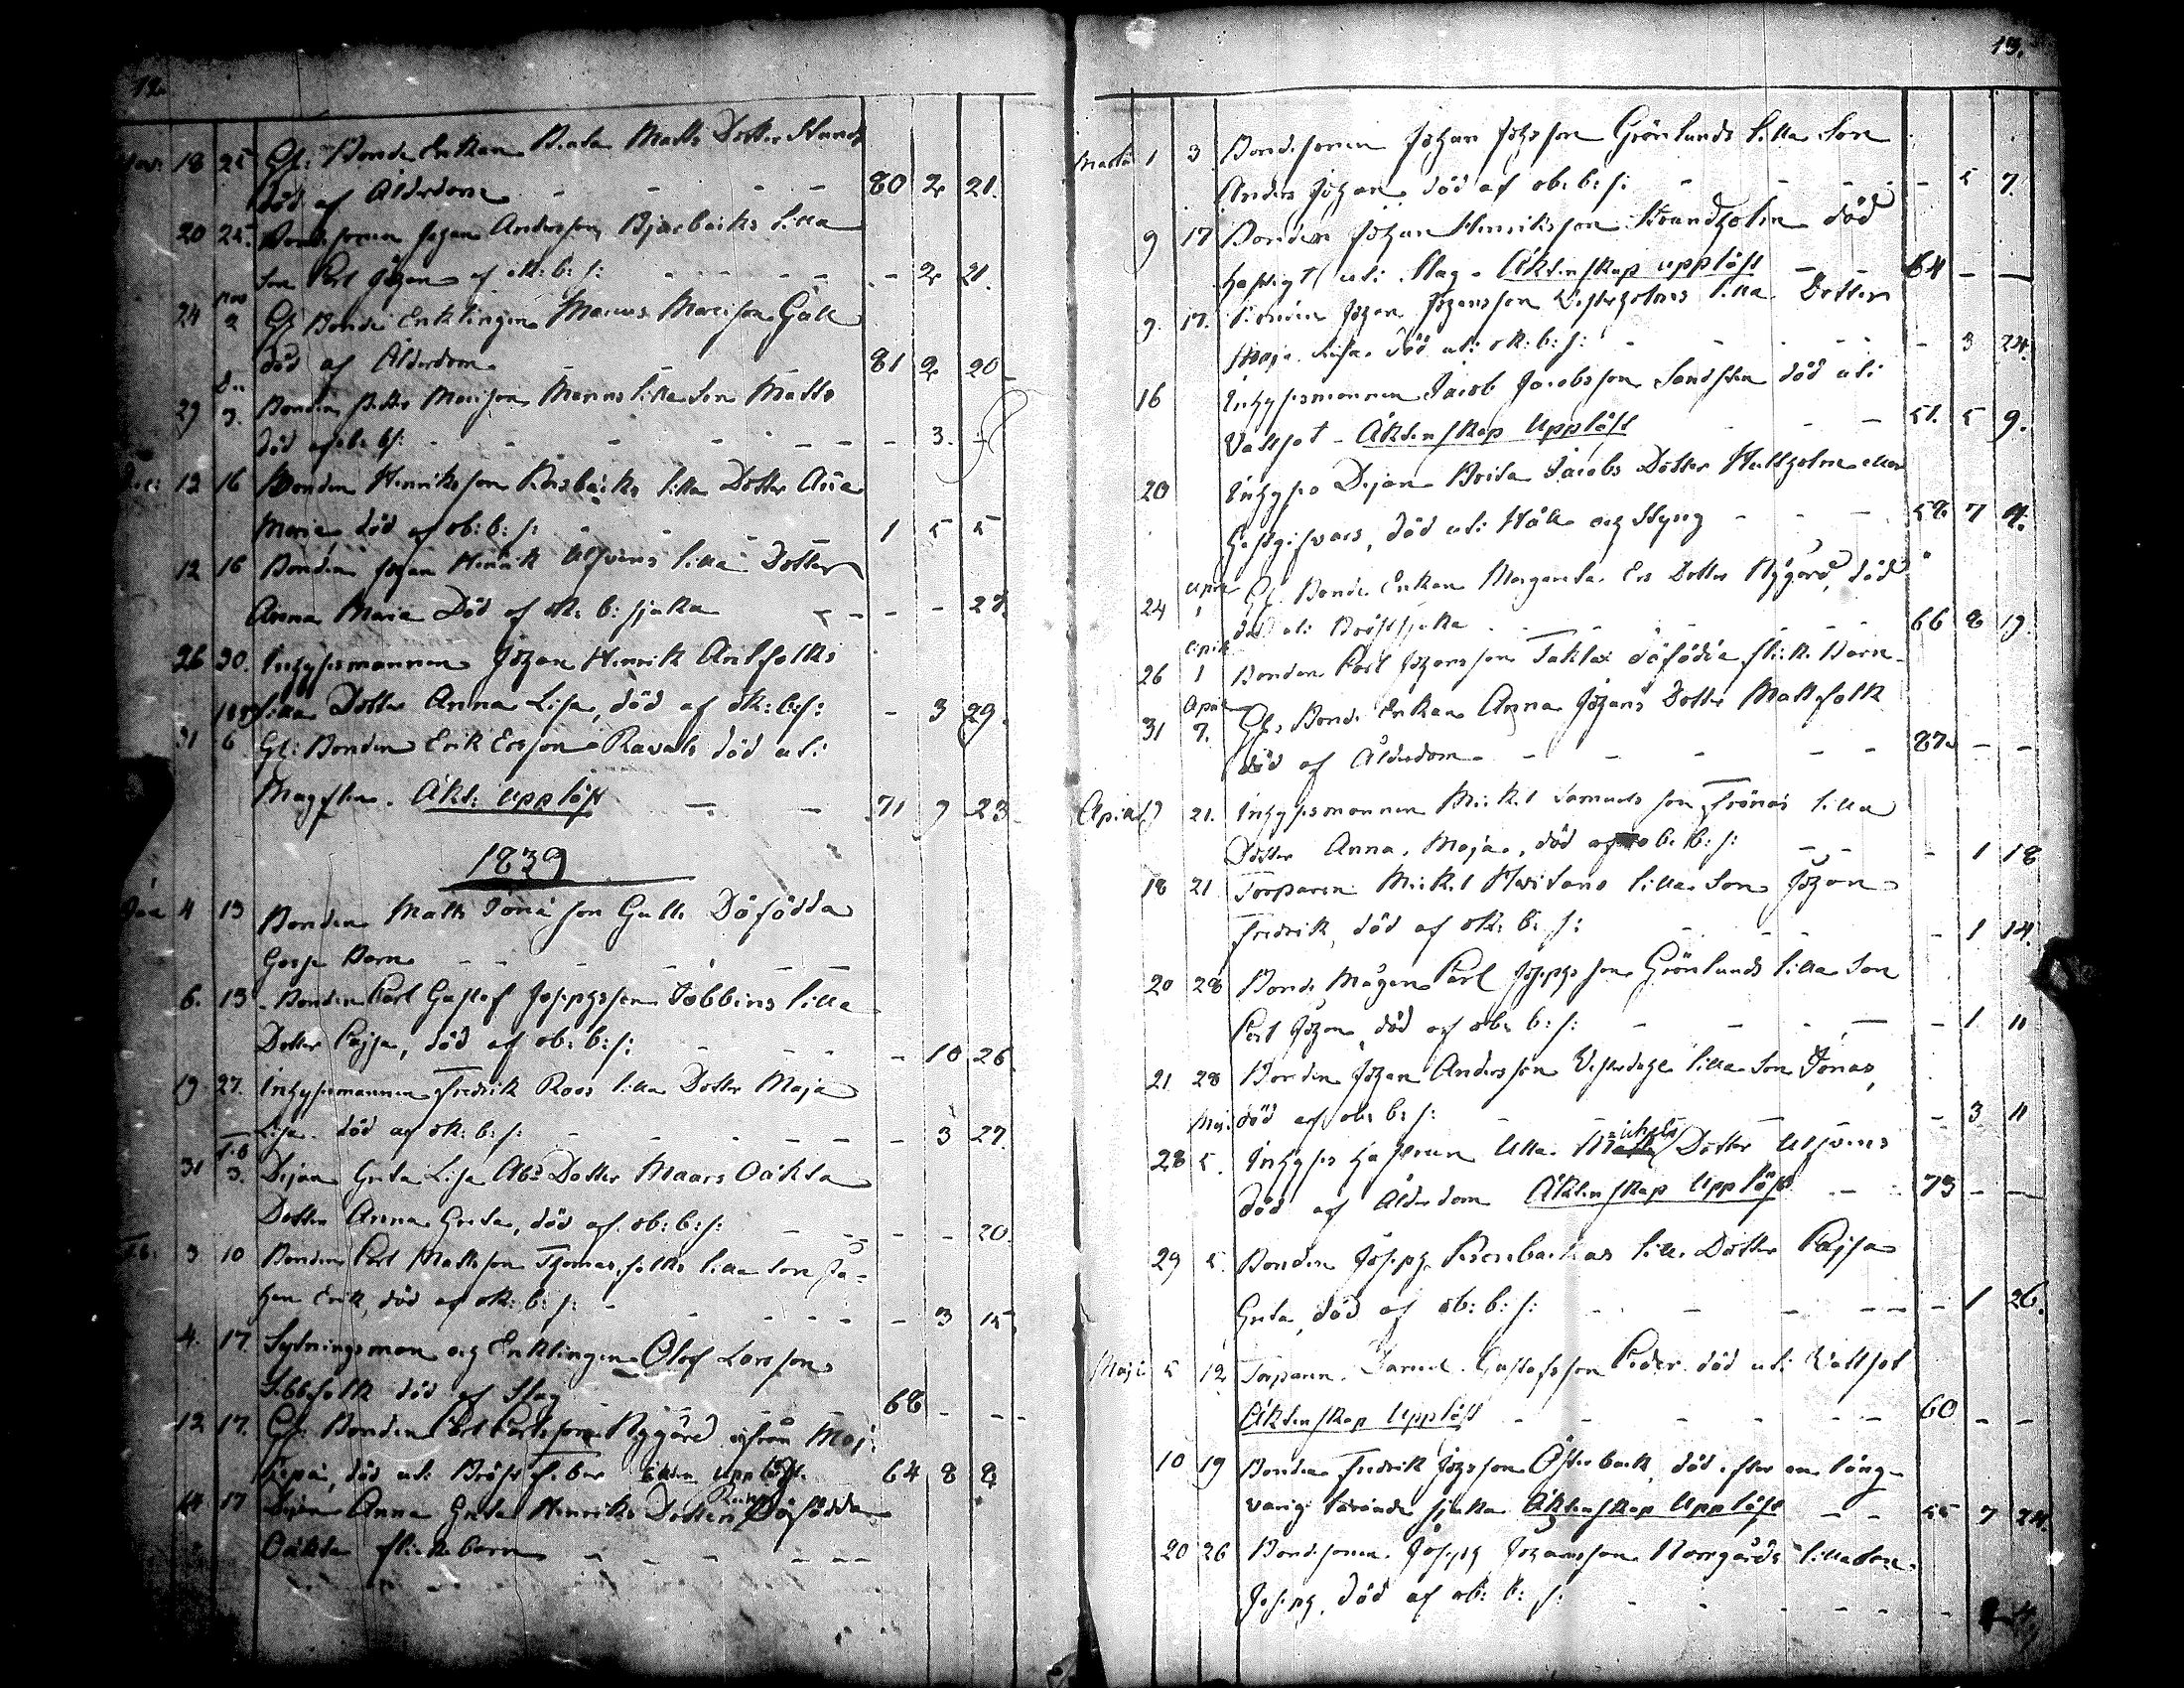 12.
Nov: 18 25 Gl: Bonde Enkan Beata Matts Dotter
död af Ålderdom - - - - 80 2 21.
20 25. Bondesonen Johan Andersson Bjurbäcks lilla
Son Carl Johan af ok: b: s: - - - - - 2 21.
24 Nov 2 Gl Bonde Enklingen Marcus Marcison Gäll
död af Ålderdom. 81 2 20
29 3. Bonden Petter Marcison Manns lilla Son Matts
död af ob: b: s: - - - - - - 3. -
Dec: 12 16 Bonden Henriksson lilla Dotter
Maria död af ob: b: s: - - - 1 5 5
12 16 Bonden Johan Henrik Ulfvens lilla Dotter
Anna Maria Död af ok: b: sjuka - - - 27.
26 30. Inhysesmannen Johan Henrik Antfolks
lilla Dotter Anna Lisa, död af ok: b: s: - 3 29.
31 6 Gl: Bonden Erik Ersson Ravals död uti
Magplan. Äkt: upplöst - - 71 9 23
1839
Jan 4 13 Bonden Matts Jonasson Gulls Döfödda
Gosse Barn - - - - - -
6. 13. Bonden Carl Gustaf Josephsson Jobbins lilla
Dotter Cajsa, död af ob: b: s: - - - - 10 26
19 27. Inhysesmannen Fredrik Roos lilla Dotter Maja
Lisa. död af ok: b: s: - - - - - 3 27.
31 Feb 3. Dejan Greta Lisa Abr Dotter Maars Oäkta
Dotter Anna Greta, död af ob: b: s: - - - - 20.
Feb: 3 10 Bonden Carl Mattsson Thomasfolks lilla Son Jo-
han Erik, död af ok: b: s: - - - - - 3 15
4. 17. Sytningsman och Enklingen Olof Larsson
Sibbfolk död af Slag - - - 68 - - -
12 17. Gl. Bonden Carl Carlsson Nygård ifrån
död uti Bröst Feber Äkten: upplöst. 64 8 8
14 17 Dejan Anna Greta Henriks Dotters Döfödda
Oäkta flicka barn - - - - - -
13.
Martii 1 3 Bondesonen Johan Johsson Grönlunds lilla Son
Anders Johan, död af ob: b: s: - - - - - 5 7.
9 17 Bonden Johan Henriksson Strandholm död
hastigt uti Slag. Äktenskap upplöst - - 64 - -
9. 17. Johan Johansson Westerholms lilla Dotter
Maja Lisa. död uti ok: b: s: - - - - - 3 24.
16 Inhysesmannen Jacob Jacobsson Sandsten död uti
Vattsot - Äktenskap Upplöst - - - 51. 5 9.
20 Inhyses Dejan Brita Jacobs Dotter
Gästgifvars, död uti Håll och Styng - - - 58 7 4.
24 April 1 Gl. Bonde Enkan Margareta Ers Dotter Nygård, död
död uti Bröstsjuka - - - - - 66 8 19.
26 April 1 Bonden Carl Johansson Taklax döfödda flicka Barn -
31 April 7. Gl. Bonde Enkan Anna Johans Dotter Mattsfolk
död af Ålderdom - - - - - - 87. - -
April 17 21. Inhysesmannen Mickel Samuelsson lilla
Dotter Anna Maja, död af ob. b. s: - - - 1 18
18 21 Torparen Mickel lilla Son Johan
Fredrik, död af ok: b: s: - - - - 1 14.
20 28 Bonde Mågen Carl Josephsson Grönlunds lilla Son
Carl Johan, död af ob: b: s: - - - - - 1 11
21 28 Bonden Johan Andersson Westerdahl lilla Son Jonas,
död af ob: b: s: - - - - 3 11
28 Maj: 5. Inhyses hustrun Ulla Michels Dotter Ulfvens
död af Ålderdom Äktenskap Upplöst - - 73 - -
29 5. Bonden Joseph lilla Dotter Cajsa
Greta, död af ob: b: s: - - - - - 1 26.
Maji 5 12 Torparen Samuel Gustafsson död uti Vattsot
Äktenskap Upplöst - - - - - - 60 - -
10 19 Bonden Fredrik Johsson Österback, död efter en lång-
varig tärande sjuka Äktenskap Upplöst - - 55 7 24.
20 26 Bondesonen Joseph Johansson Norrgårds lilla Son
Joseph. död af ob: b: s: - - - - -